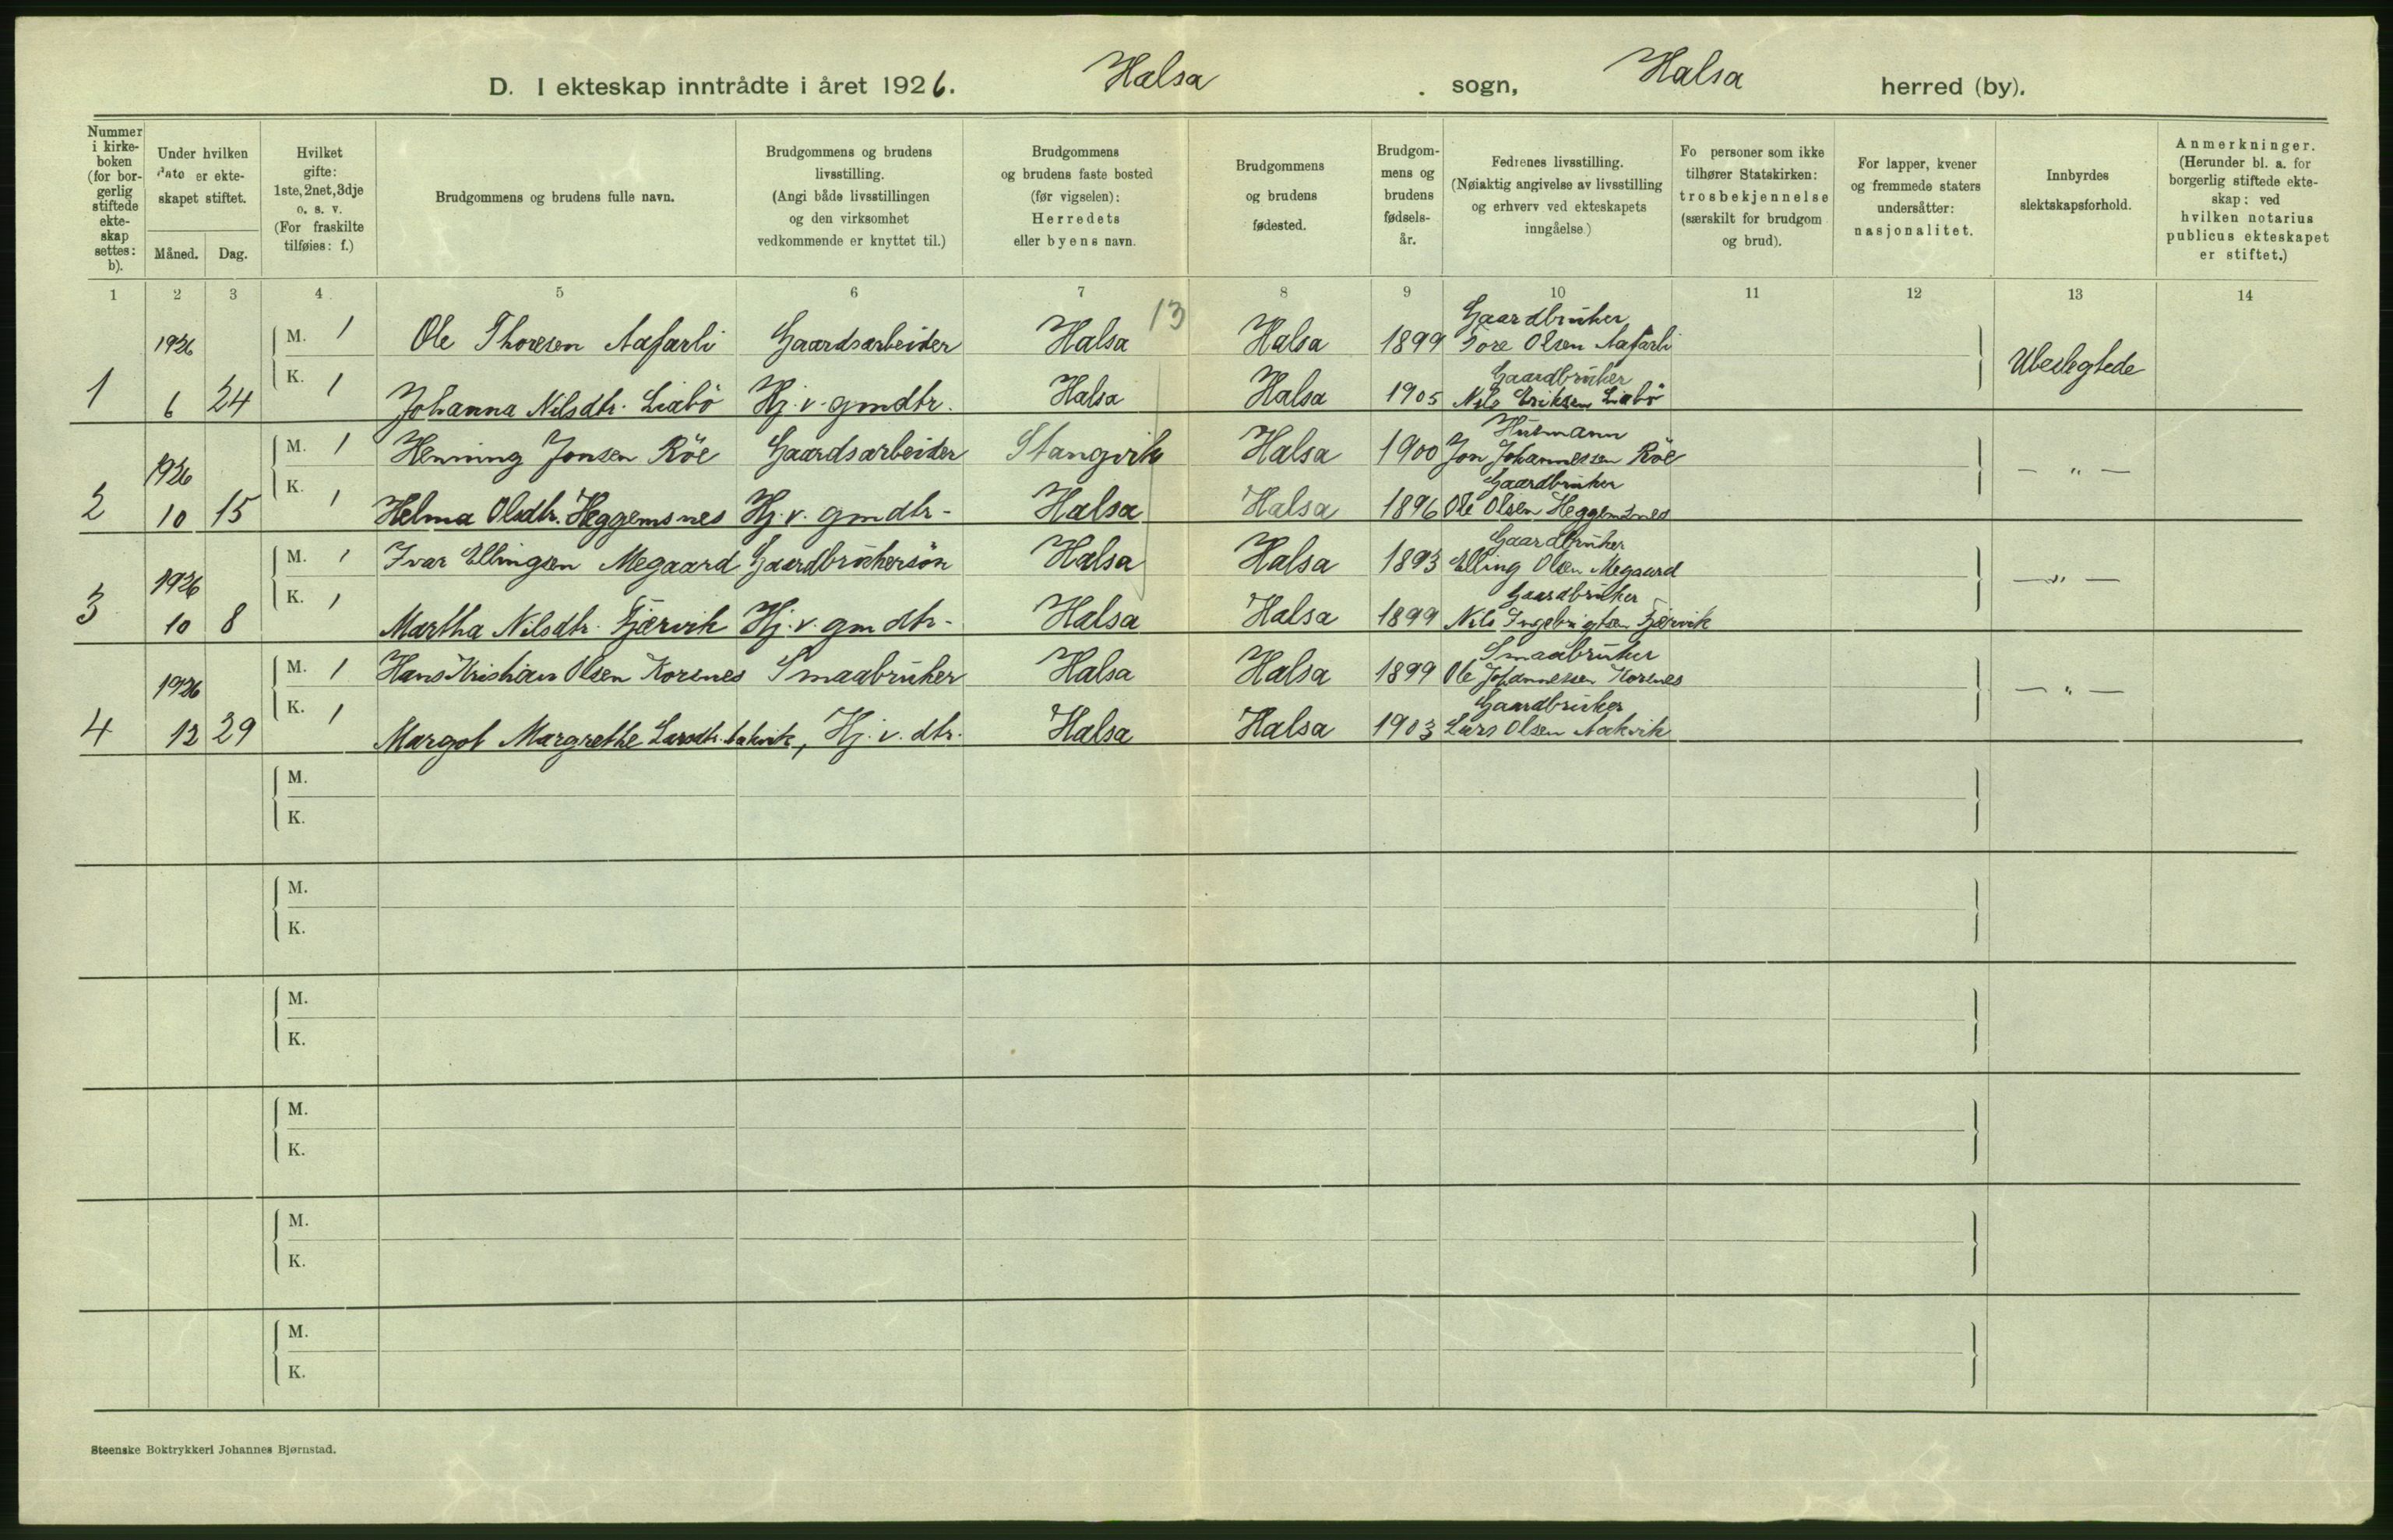 D. I ekteskap inntrådte i året 1926. Halsa . sogn, Halsa herred (by).
Nummer
i kirke-
boken
(for bor-
gerlig
stiftede
ekte-
skap
settes:
b).
Under hvilken
dato er ekte-
skapet stiftet.
Måned.
Dag.
Hvilket
gifte:
1ste, 2net, 3dje
o. s. v.
(For fraskilte
tilføies: f.)
Brudgommens og brudens fulle navn.
Brudgommens og brudens
livsstilling.
(Angi både livsstillingen
og den virksomhet
vedkommende er knyttet til.)
Brudgommens
og brudens faste bosted
(før vigselen):
Herredets
eller byens navn.
Brudgommens
og brudens
fødested.
Brudgom-
mens og
brudens
fødsels-
år.
Fedrenes livsstilling.
(Nøiaktig angivelse av livsstilling
og erhverv ved ekteskapets
inngåelse)
Fo personer som ikke
tilhører Statskirken:
trosbekjennelse
(særskilt for brudgom
og brud).
For lapper, kvener
og fremmede staters
undersåtter:
nasjonalitet.
Innbyrdes
slektskapsforhold.
Anmerkninger.
(Herunder bl. a. for
borgerlig stiftede ekte-
skap: ved
hvilken notarius
publicus ekteskapet
er stiftet.)
1 2 3 4 5 6 7 8 9 10 11 12 13 14
13
Gaardbruker
1926 M. 1 Ole Thoresen Aafarli Gaardsarbeider Halsa Halsa 1899 Tore Olsen Aafarli
Ubeslegtede
Gaardbruker
1 6 24 K. 1 Johanna Nilsdtr. Liabö Hj. v. gmdtr. Halsa Halsa 1905 Nils Eriksen Liabö
Husmann
1926 M. 1 Henning Jonsen Röe Gaardsarbeider Stangvik Halsa 1900 Jon Johannessen Röe
— „ —
Gaardbruker
2 10 15 K. 1 Helma Olsdtr. Heggemsnes Hj. v. gmdtr- Halsa Halsa 1896 Ole Olsen Heggemsnes
Gaardbruker
1926 M. 1 Ivar Ellingsen Megaard Gaardbrukersön Halsa Halsa 1893 Elling Olsen Megaard
— „ —
Gaardbruker
3 10 8 K. 1 Martha Nilsdtr. Fjærvik Hj. v. gmdtr- Halsa Halsa 1899 Nils Ingebrigtsen Fjærvik
Smaabruker
1926 M. 1 Hans Kristian Olsen Korsnes Smaabruker Halsa Halsa 1899 Ole Johannessen Korsnes
— „ —
Gaardbruker
4 12 29 K. 1 Margot Margrethe Larsdtr. Aakvik, Hj. v. dtr. Halsa Halsa 1903 Lars Olsen Aakvik
M.
K.
M.
K.
M.
K.
M.
K.
M.
K.
M.
K.
Steenske Boktrykkeri Johannes Bjørnstad.